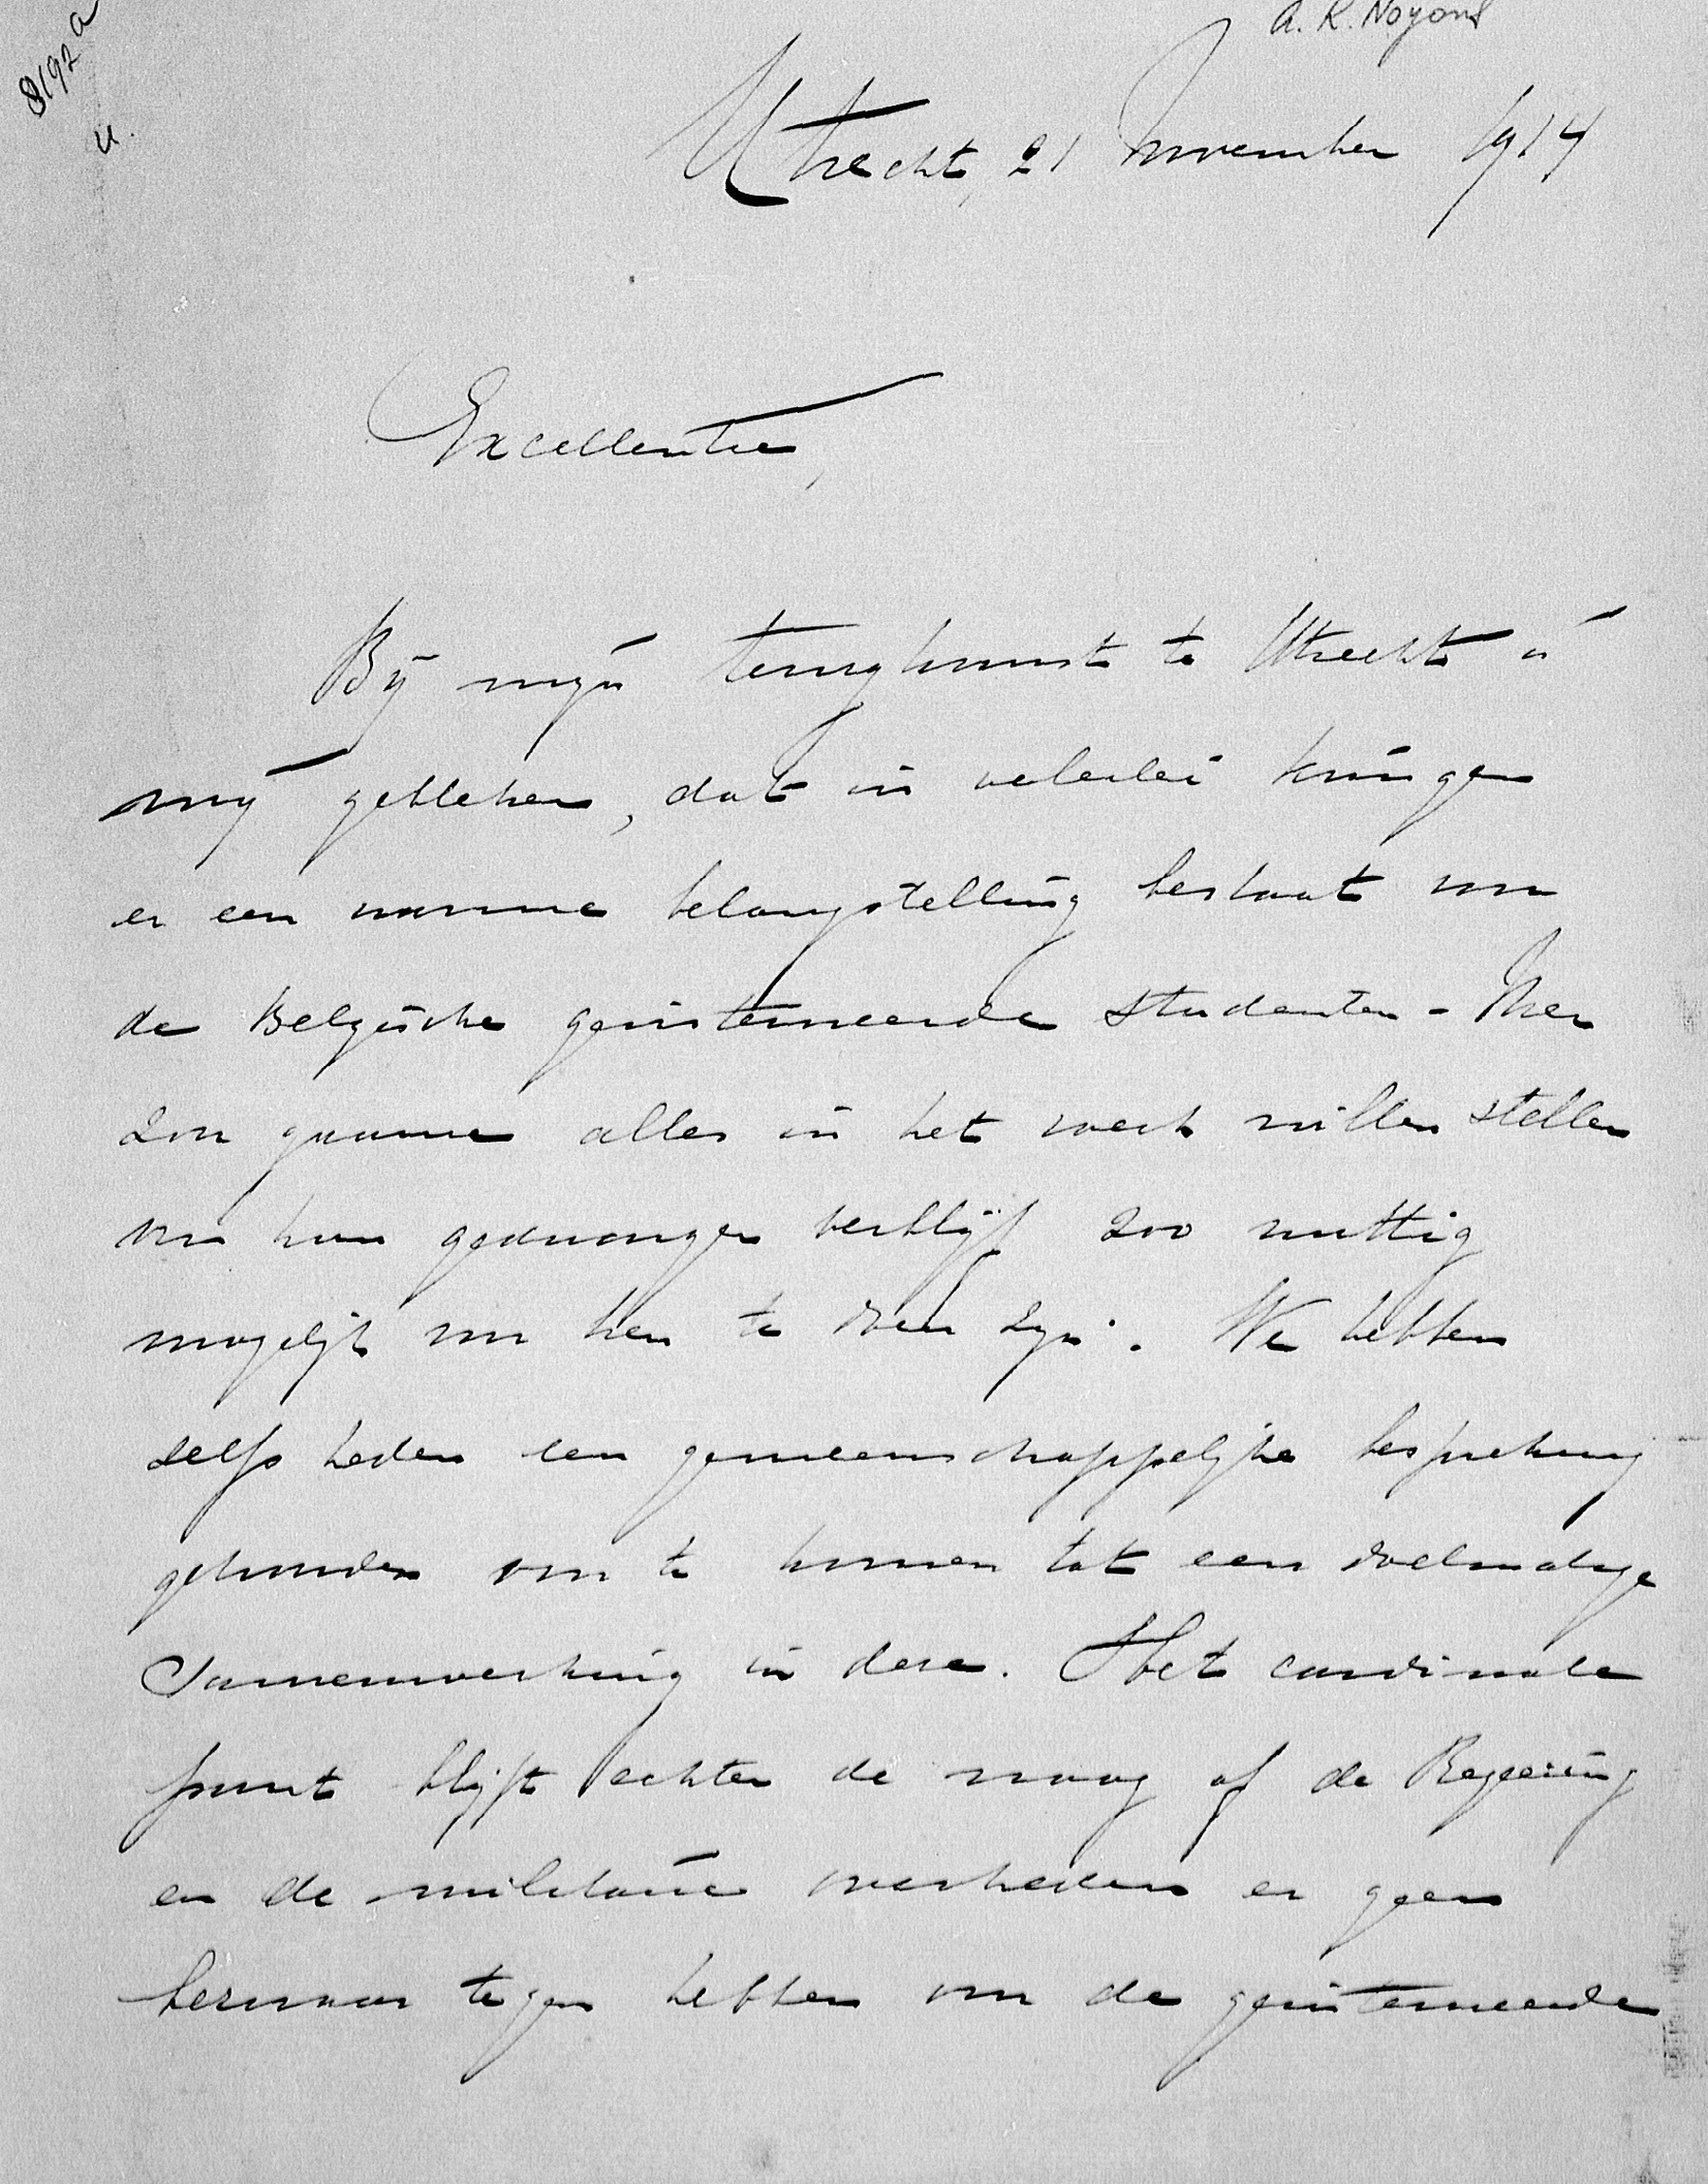 A. K. Noyons
8192 a
U.
Utrecht, 21 November 1914
Excellentie,
Bij mijn terugkomst te Utrecht is
mij gebleken, dat in velerlei kringen
er een warme belangstelling bestaat voor
de Belgische geinterneerde studenten - Men
zou gaarne alles in het werk willen stellen
om hun gedwongen verblijf zoo nuttig
mogelijk voor hen te doen zijn. We hebben
zelfs heden een gemeenschappelijke bespreking
gehouden om te komen tot een doelmatige
Samenwerking in deze. Het cardinale
punt blijft echter de vraag of de Regeering
en de militaire overheden er geen
bezwaar tegen hebben om de geinterneerde